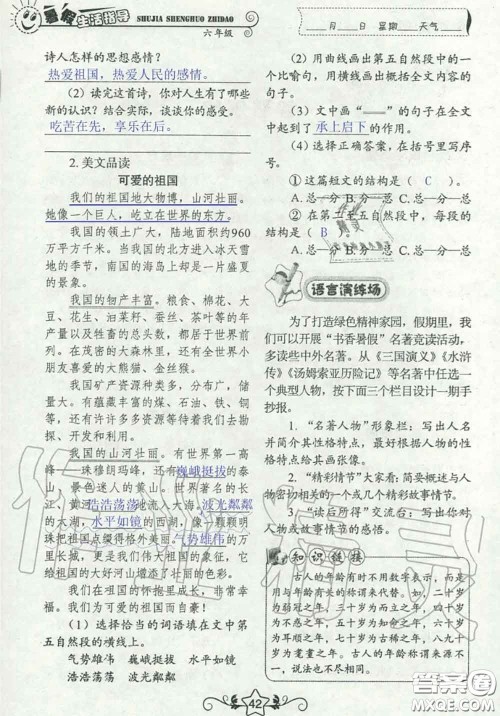 暑假生活指导
SHUJIA SHENGHUO ZHIDAO
六年级
月 日 星期 天气
诗人怎样的思想感情?
热爱祖国,热爱人民的感情。
(2)读完这首诗,你对人生有了哪些
新的认识?结合实际,谈谈你的感受。
吃苦在先,享乐在后。
2. 美文品读
可爱的祖国
我们的祖国地大物博,山河壮丽。
她像一个巨人,屹立在世界的东方。
我国的领土广大,陆地面积约960
万平方千米。当我国的北方进入冰天雪
地的冬天时,南海的海岛上却是一片盛夏
的景象。
我国的物产丰富。粮食、棉花、大
豆、花生、油菜籽、蚕丝、茶叶等的年
产量以及牲畜的总头数,都居于世界前
列。在茂密的大森林里,还有全世界小
朋友喜爱的大熊猫、金丝猴。
我国矿产资源种类多,分布广,储
量大。有蕴藏丰富的煤、石油、铁、铜、
钨、锑等资源,等待着我们去勘探、
开发和利用。
我国的山河壮丽。有世界第一高
峰——珠穆朗玛峰,还有巍峨挺拔的泰
山,景色迷人的黄山。我国有世界著名
的大河,浩浩荡荡地流入大海,波光粼粼
的大湖,水平如镜的西湖,像一颗颗明
珠把祖国点缀得格外美丽。气势雄伟的
万里长城,更是我们伟大祖国的象征,它
给祖国的大好河山增添了雄伟的色彩。
我们祖国的怀抱里成长,非常幸
福。我们为可爱的祖国而自豪!
(1)选择恰当的词语填在文中第
五自然段的横线上。
气势雄伟 巍峨挺拔 水平如镜
浩浩荡荡 波光粼粼
(2)用曲线画出第五自然段中的一
个比喻句,用横线画出概括全文内容的
句子。
(3)文中画“——”的句子在全文
中起到了承上启下的作用。
(4)选择正确答案,在括号里写序
号。
①这篇短文的结构是( C )。
A.总—分 B.分—总 C.总—分—总
②在第二至五自然段中,每段的
结构是( B )。
A.总—分 B.分—总 C.总—分—总
语言演练场
为了打造绿色精神家园,假期里,我
们可以开展“书香暑假”名著竞读活动,
多读些中外名著。从《三国演义》《水浒
传》《汤姆索亚历险记》等名著中任选一
个典型人物,按下面三个栏目设计一期手
抄报。
1. “名著人物”形象栏:写出人名
并简介其性格特点,根据人物的性格特
点给其画张像。
2. “精彩情节”大家看:简要概述与人
物密切相关的一个或几个精彩故事情节。
3. “读后所得”交流台:写出你对
人物或故事情节的感悟。
知识链接
古人的年龄有时不用数字表示,而是
用与年龄有关的称谓来代替。如,二十岁
为弱冠之年,三十岁为而立之年,四十岁
为不惑之年,五十岁为知命之年,六十岁
为耳顺之年,七十岁为古稀之年,八九十
岁为耄耋之年。古人的年龄称谓来源不
同,说法也不尽相同。
42
答案圈
MXQE.COM